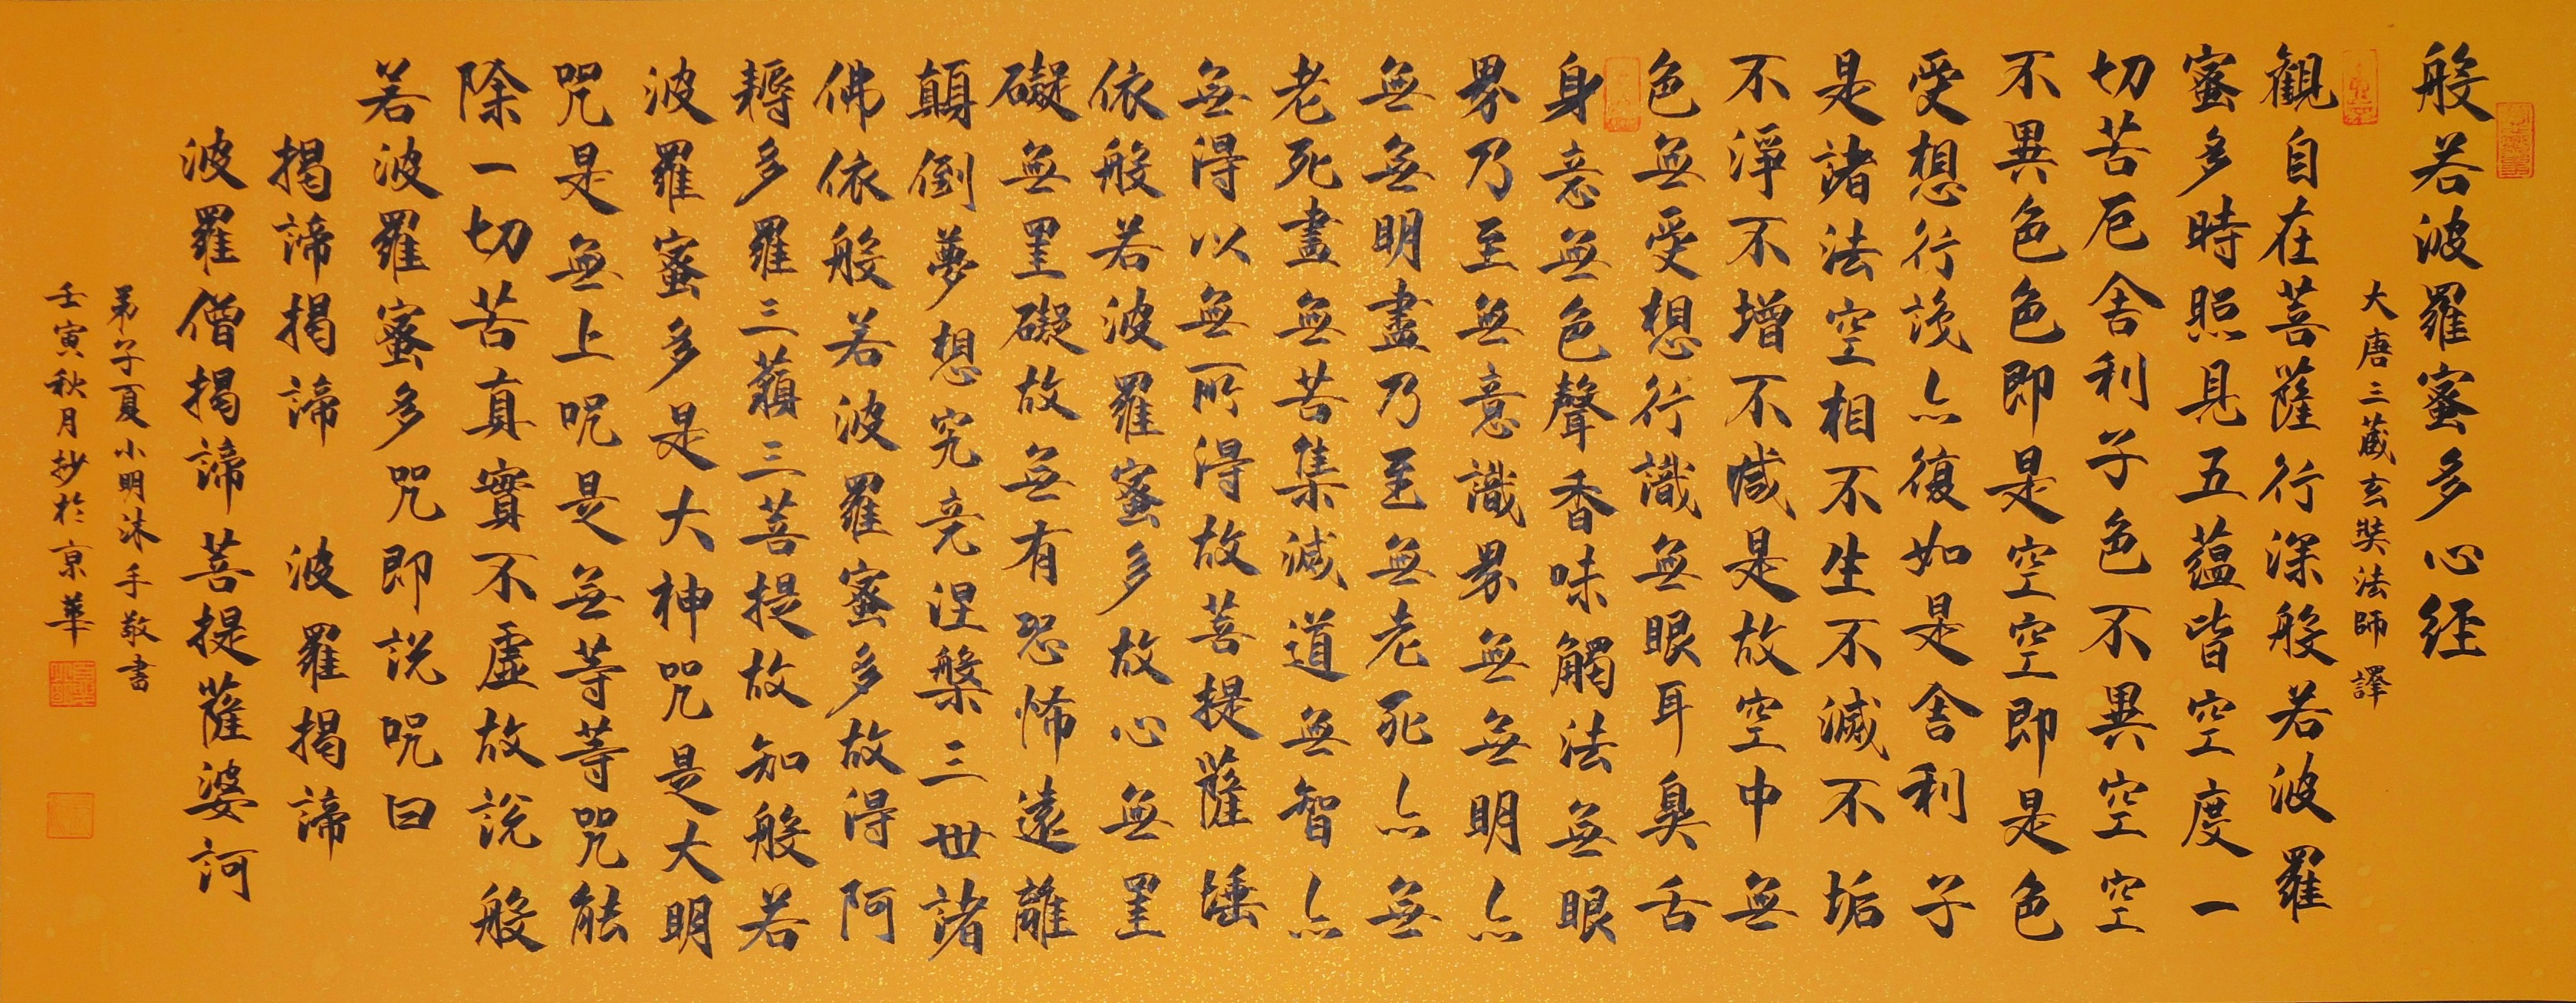 般若波羅蜜多心経
大唐三蔵玄奘法師譯
観自在菩薩行深般若波羅
蜜多時照見五蘊皆空度一
切苦厄舍利子色不異空空
不異色色即是空空即是色
受想行識亦復如是舍利子
是諸法空相不生不滅不垢
不淨不增不減是故空中無
色無受想行識無眼耳鼻舌
身意無色聲香味觸法無眼
界乃至無意識界無無明亦
無無明盡乃至無老死亦無
老死盡無苦集滅道無智亦
無得以無所得故菩提薩埵
依般若波羅蜜多故心無罣
礙無罣礙故無有恐怖遠離
顛倒夢想究竟涅槃三世諸
佛依般若波羅蜜多故得阿
耨多羅三藐三菩提故知般若
波羅蜜多是大神咒是大明
咒是無上呪是無等等咒能
除一切苦真實不虛故說般
若波羅蜜多咒即説呪曰
揭諦揭諦 波羅揭諦
波羅僧揭諦菩提薩婆訶
弟子夏小明沐手敬書
壬寅秋月抄於京華